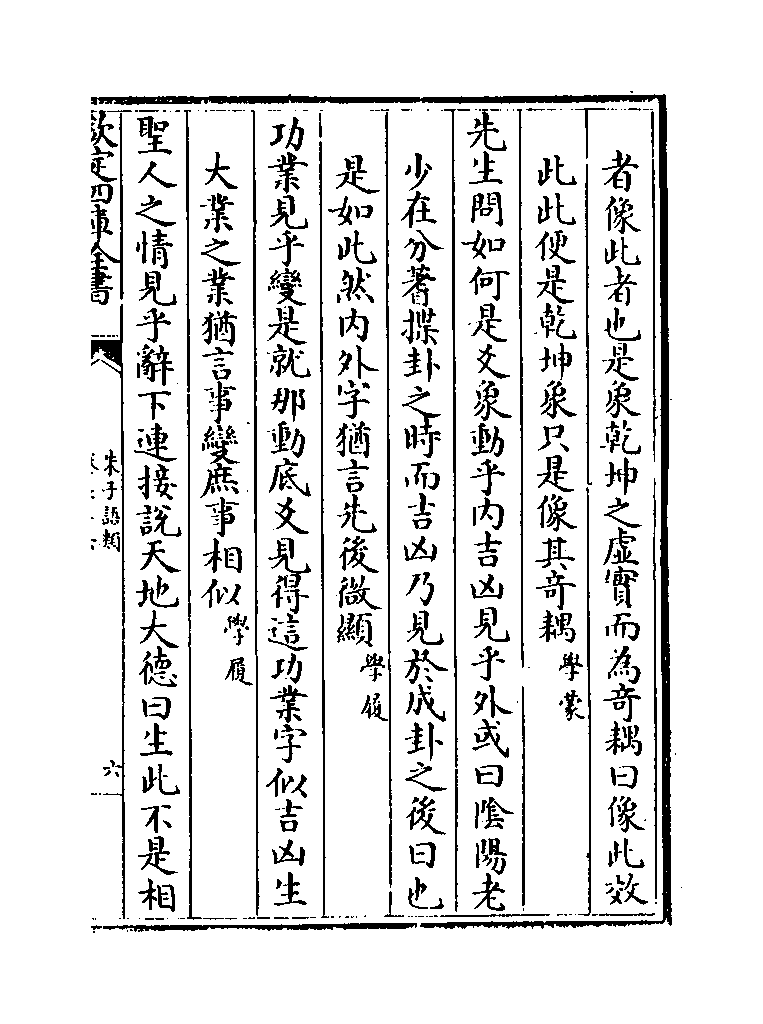 者像此者也是象乾坤之虚實而為奇耦曰像此效
此此便是乾坤象只是像其奇耦學蒙
先生問如何是爻象動乎内吉凶見乎外或曰陰陽老
少在分蓍揲卦之時而吉凶乃見於成卦之後曰也
是如此然内外字猶言先後微顯學履
功業見乎變是就那動底爻見得這功業字似吉凶生
大業之業猶言事變庶事相似學履
聖人之情見乎辭下連接說天地大德曰生此不是相
欽定四庫全書
朱子語類
六